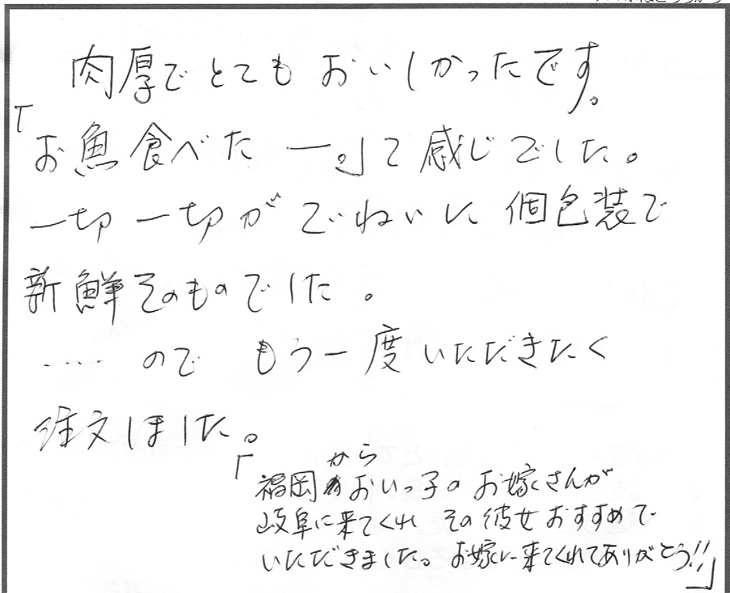 肉厚でとてもおいしかったです。
「お魚食べたー。」て感じでした。
一切一切がていねいに個包装で
新鮮そのものでした。
‥‥ので もう一度いただきたく
注文しました。
「福岡からおいっ子のお嫁さんが
岐阜に来てくれ その彼女おすすめで
いただきました。お嫁に来てくれてありがとう!!」